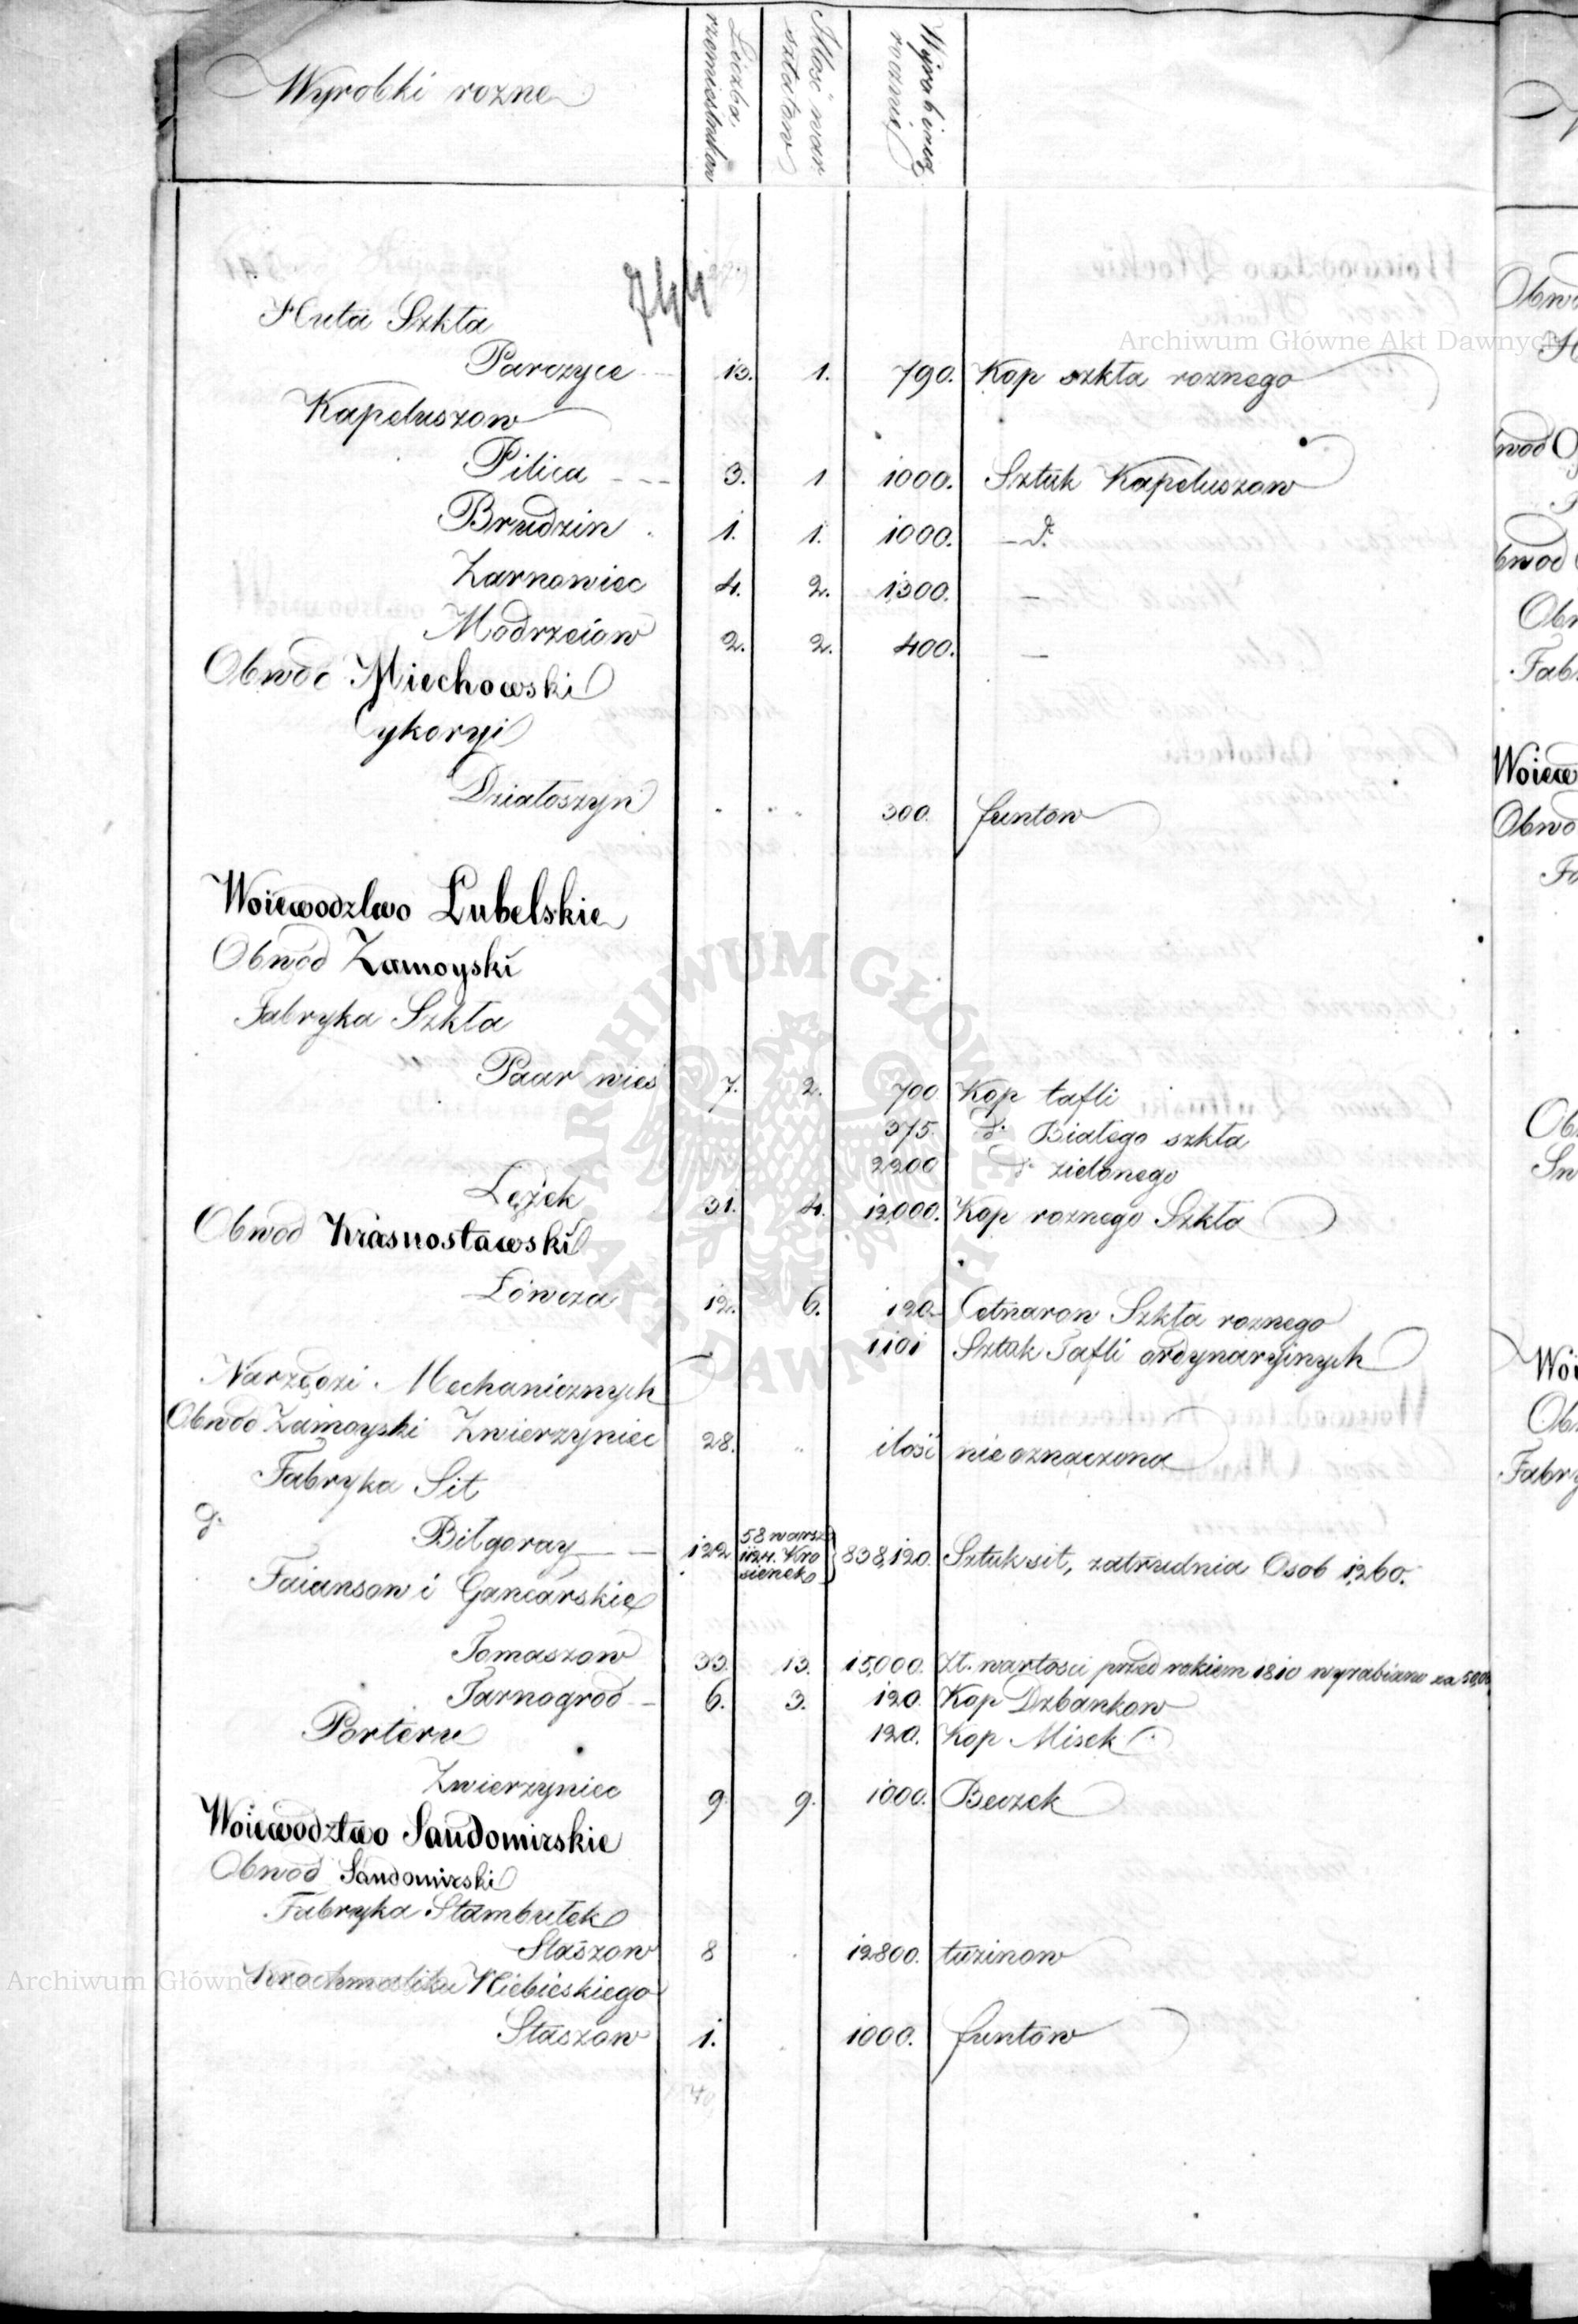 Wyrobki rozne
Liczba rzemieslnikow
Ilosć warsztatow
Wyrabiaią rocznie
744
Huta Szkła
Parczyce 13. 1. 790. Kop szkła roznego
Kapeluszow
Pilica - - - 3. 1 1000. Sztuk Kapeluszow
Brudzin . 1. 1. 1000. — do
Zarnowiec 4. 2. 1300. —
Modrzeiow 2. 2. 400. —
Obwod Miechowski
Cykoryi
Działoszyn " " " 300. funtow
Woiewodztwo Lubelskie
Obwod Zamoyski
Fabryka Szkła
Paar wies 7. 2. 700 Kop tafli
375. do Białego szkła
2200 do zielonego
Lężek 31. 4. 12,000. Kop roznego Szkła
Obwod Krasnostawski
Łowcza 12. 6. 120. Cetnarow Szkła roznego
1101 Sztuk Tafli ordynaryinych
Narzędzi Mechanicznych
Obwod Zamoyski Zwierzyniec 28. " ilosć nieoznaczona
Fabryka Sit
do
Biłgoray — — 122 58 warsz 124. Krosienek 838,120. Sztuk sit, zatrudnia Osob 1260.
Faiansow i Gancarskie
Tomaszow 33. 13. 15,000. Zł. wartosci przed rokiem 1810 wyrabiano za
Tarnogrod - 6. 3. 120. Kop Dzbankow
Porteru 120. Kop Misek
Zwierzyniec 9. 9. 1000. Beczek
Woiewodztwo Sandomirskie
Obwod Sandomirski
Fabryka Stambułek
Staszow 8 . 12800. tuzinow
Krochmaliku Niebieskiego
Staszow 1. 1000. funtow
Archiwum Główne Akt Dawnych
ARCHIWUM GŁÓWNE AKT DAWNYCH
Archiwum Główne